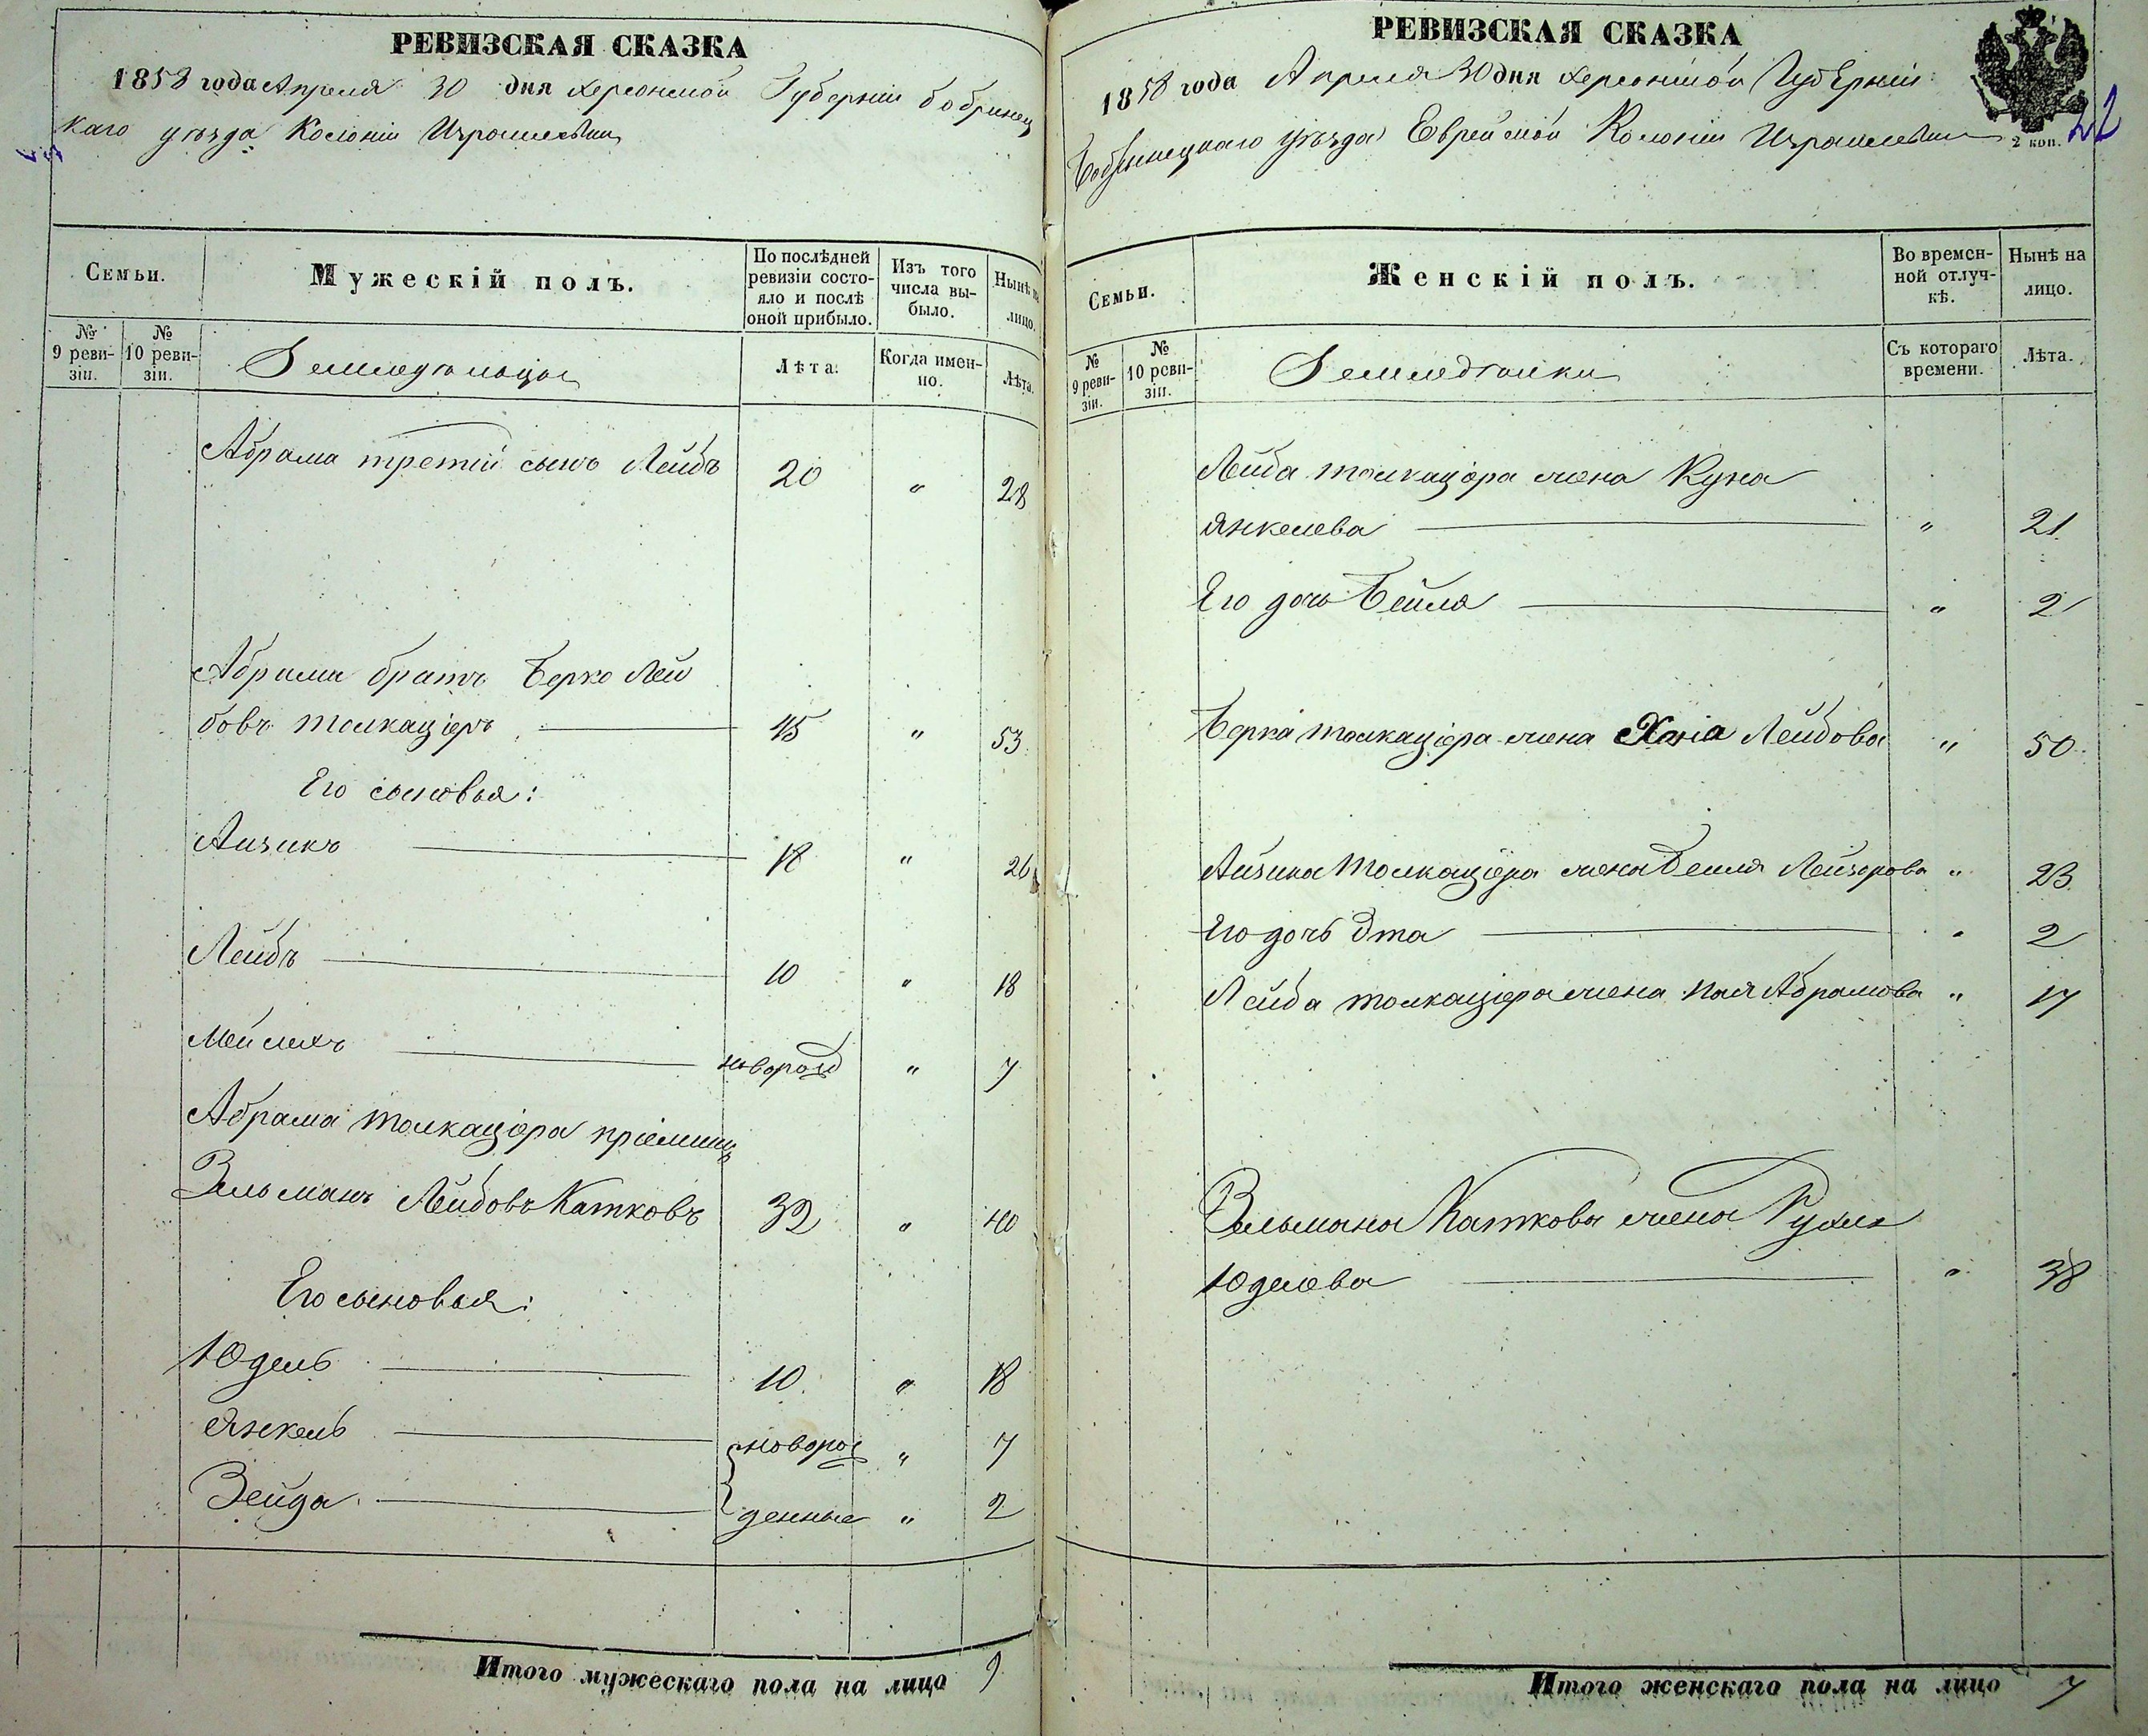 РЕВИЗСКАЯ СКАЗКА
1858 года Апреля 30 дня Херсонской Губерніи Бобринец
каго уѣзда Колоніи Израилевки
Семьи.
Мужескій полъ.
По послѣдней ревизіи состояло и послѣ оной прибыло.
Изъ того числа выбыло.
Нынѣ на лицо.
№ 9 ревизіи.
№ 10 ревизіи.
Земледѣльцы
Лѣта.
Когда именно.
Лѣта.
Абрама третій сынъ Лейбъ 20 " 28
Абрама братъ Берко Лей
бовъ Толкацеръ 45 " 53
Его сыновья:
Айзикъ 18 " 26
Лейбъ 10 " 18
Мейлехъ новорожд " 7
Абрама Толкацера пріемышъ
Зельманъ Лейбовъ Катковъ 32 " 40
Его сыновья:
Юдель 10 " 18
Янкель новорож " 7
Зейда денные " 2
Итого мужескаго пола на лицо 9
РЕВИЗСКАЯ СКАЗКА
1858 года Апреля 30 дня Херсонской Губерніи
Бобринецкаго уѣзда Еврейской Колоніи Израилевки
2 коп.
Семьи.
Женскій полъ.
Во временной отлучкѣ.
Нынѣ на лицо.
№ 9 ревизіи.
№ 10 ревизіи.
Земледѣлки
Съ котораго времени.
Лѣта.
Лейба Толкацера жена Куна
Янкелева " 21
Его дочь Бейля " 2
Берка Толкацера жена Хаія Лейбова " 50
Айзика Толкацера жена Бейля Лейзорова " 23
Его дочь Эта " 2
Лейба Толкацера жена Пая Абрамова " 17
Зельмана Каткова жена Рухля
Юделева " 38
Итого женскаго пола на лицо 7